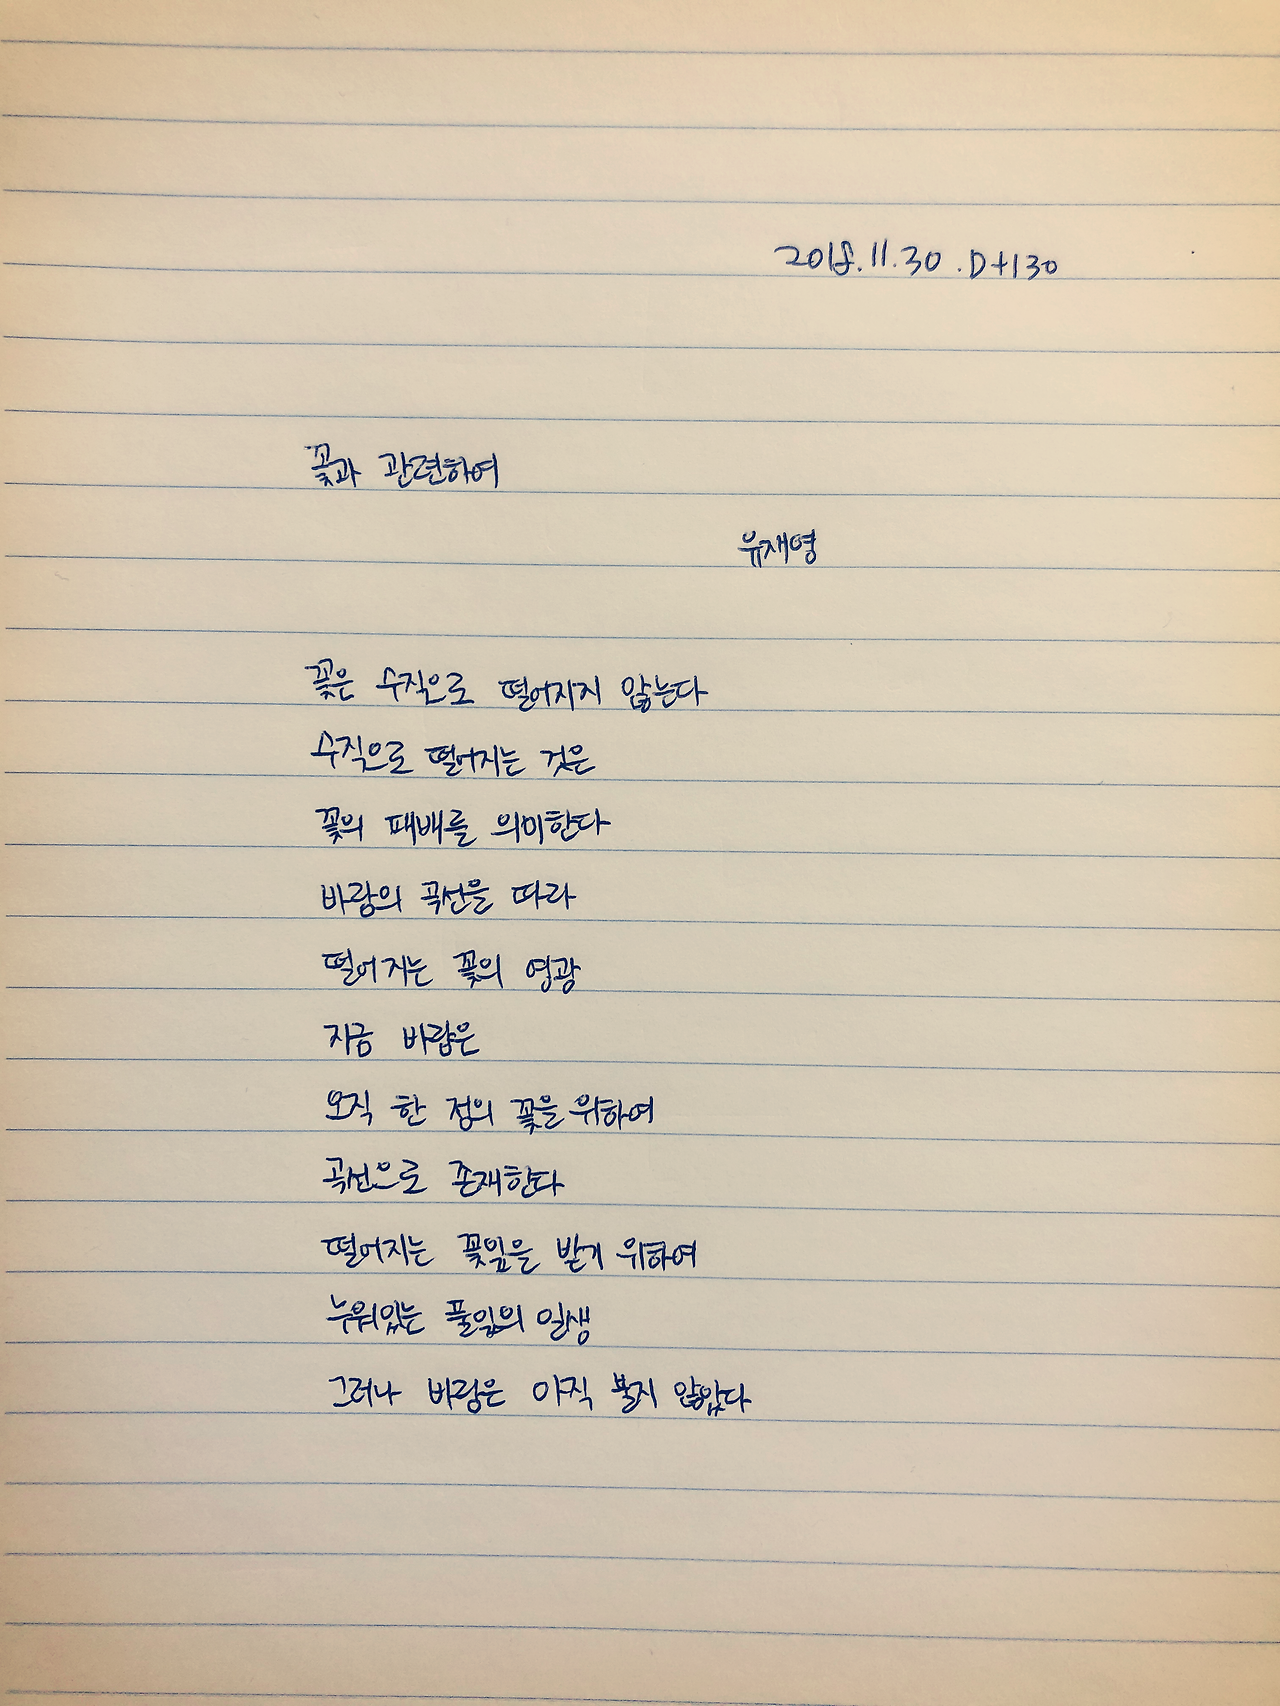 2018.11.30 .D+130
꽃과 관련하여
유재영
꽃은 수직으로 떨어지지 않는다
수직으로 떨어지는 것은
꽃의 패배를 의미한다
바람의 곡선을 따라
떨어지는 꽃의 영광
지금 바람은
오직 한 점의 꽃을 위하여
곡선으로 존재한다
떨어지는 꽃잎을 받기 위하여
누워있는 풀잎의 일생
그러나 바람은 아직 불지 않았다